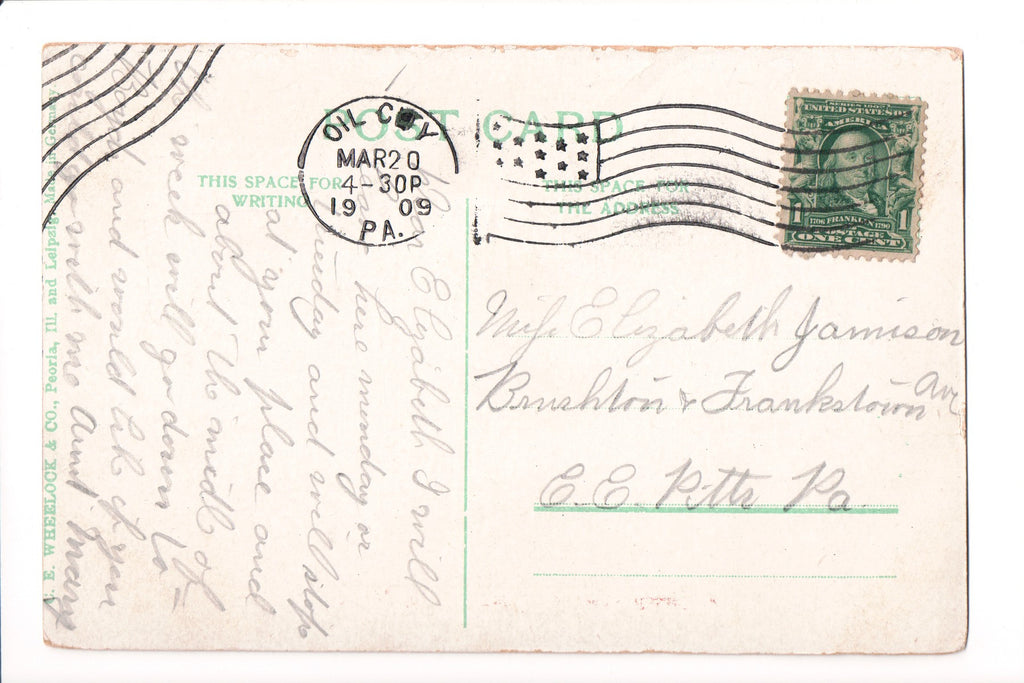 POST CARD
THIS SPACE FOR
WRITING
THIS SPACE FOR
THE ADDRESS
OIL CITY
MAR20
4-30P
19 09
PA.
SERIES 1902
UNITED STATES OF
AMERICA
1 1
1706 FRANKLIN 1790
POSTAGE
ONE CENT
Miss Elizabeth Jamison
Brushton & Frankstown Ave
E.E. Pitts Pa
Dear Elizibeth I will
leave here munday or
Tuesday and will stop
at your place and
about the midl of
week will go down to
and would lik if you
with me Aunt Mary
C. E. WHEELOCK & CO., Peoria, Ill. and Leipsig, Made in Germany.